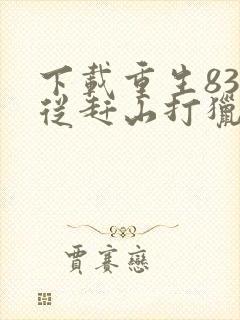 下載重生83
從趕山打獵
賈賽戀